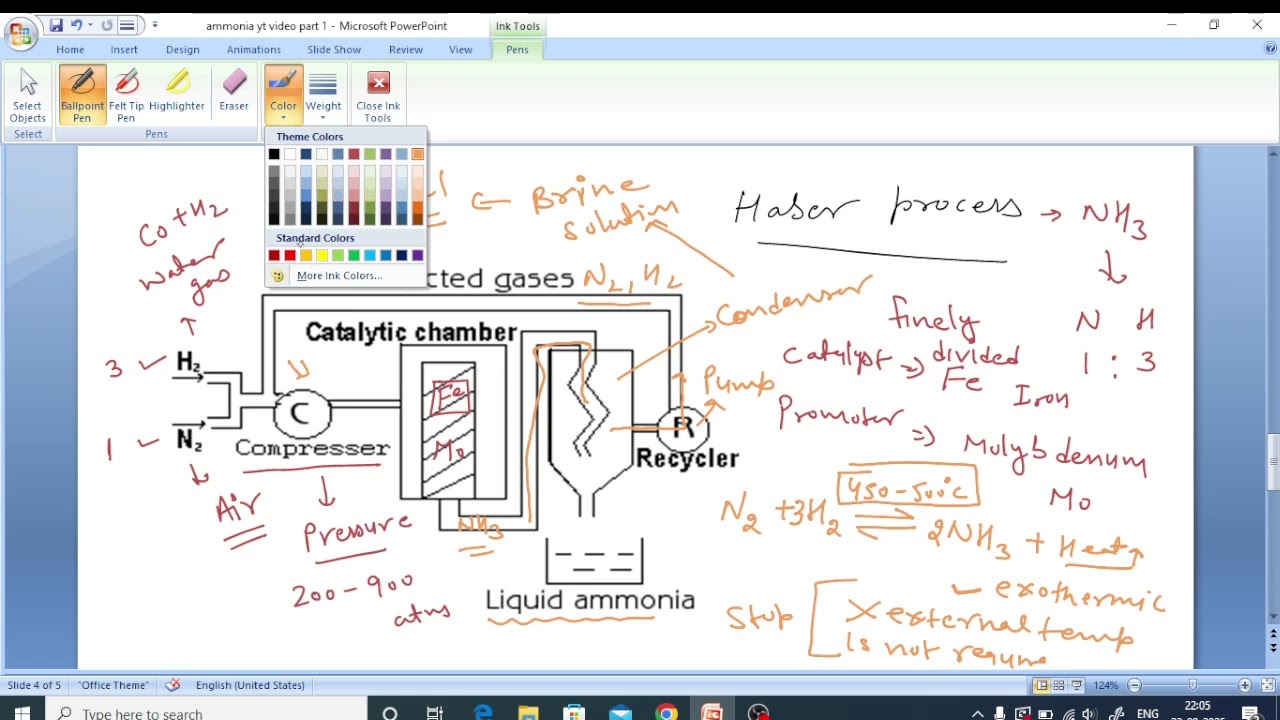 ammonia yt video part 1 - Microsoft PowerPoint
Ink Tools
Home Insert Design Animations Slide Show Review View Pens
Select Objects
Ballpoint Pen
Felt Tip Pen
Highlighter
Eraser
Color
Weight
Close Ink Tools
Select
Pens
Theme Colors
Standard Colors
More Ink Colors...
Co+H2
water gas
← Brine Solution
Haber process → NH3
cted gases N2, H2
Condensor
Catalytic chamber
3 ✓ H2
1 ✓ N2
C
Compresser
Air
Pressure
200-900 atms
Fe
Mo
NH3
Pump
R
Recycler
Liquid ammonia
N H
1 : 3
Catalyst ⇒ finely divided Fe Iron
Promoter ⇒ Molybdenum
Mo
450-500°C
N2 + 3H2 ⇌ 2NH3 + Heat
exothermic
Stop [ X external temp
is not
Slide 4 of 5
"Office Theme"
English (United States)
124%
Type here to search
ENG
22:05